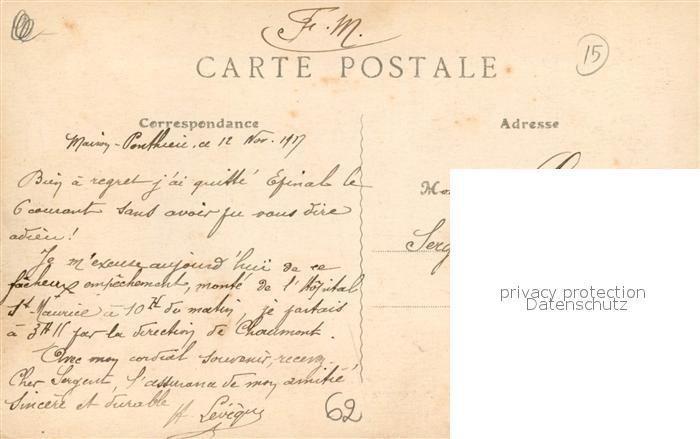 F. M.
15
CARTE POSTALE
Correspondance
Adresse
Maison-Ponthieu, ce 12 Nov. 1917
Bien à regret j'ai quitté Epinal le
6 courant sans avoir pu vous dire
adieu!
Je m'excuse aujourd'hui de ce
fâcheux empêchement, monté de l'Hôpital
St Maurice à 10H du matin, je partais
à 3H11 par la direction de Chaumont.
Avec mon cordial souvenir, recevez
Cher Sergent, l'assurance de mon amitié
sincère et durable
A. Levêque
62
Serg
privacy protection
Datenschutz